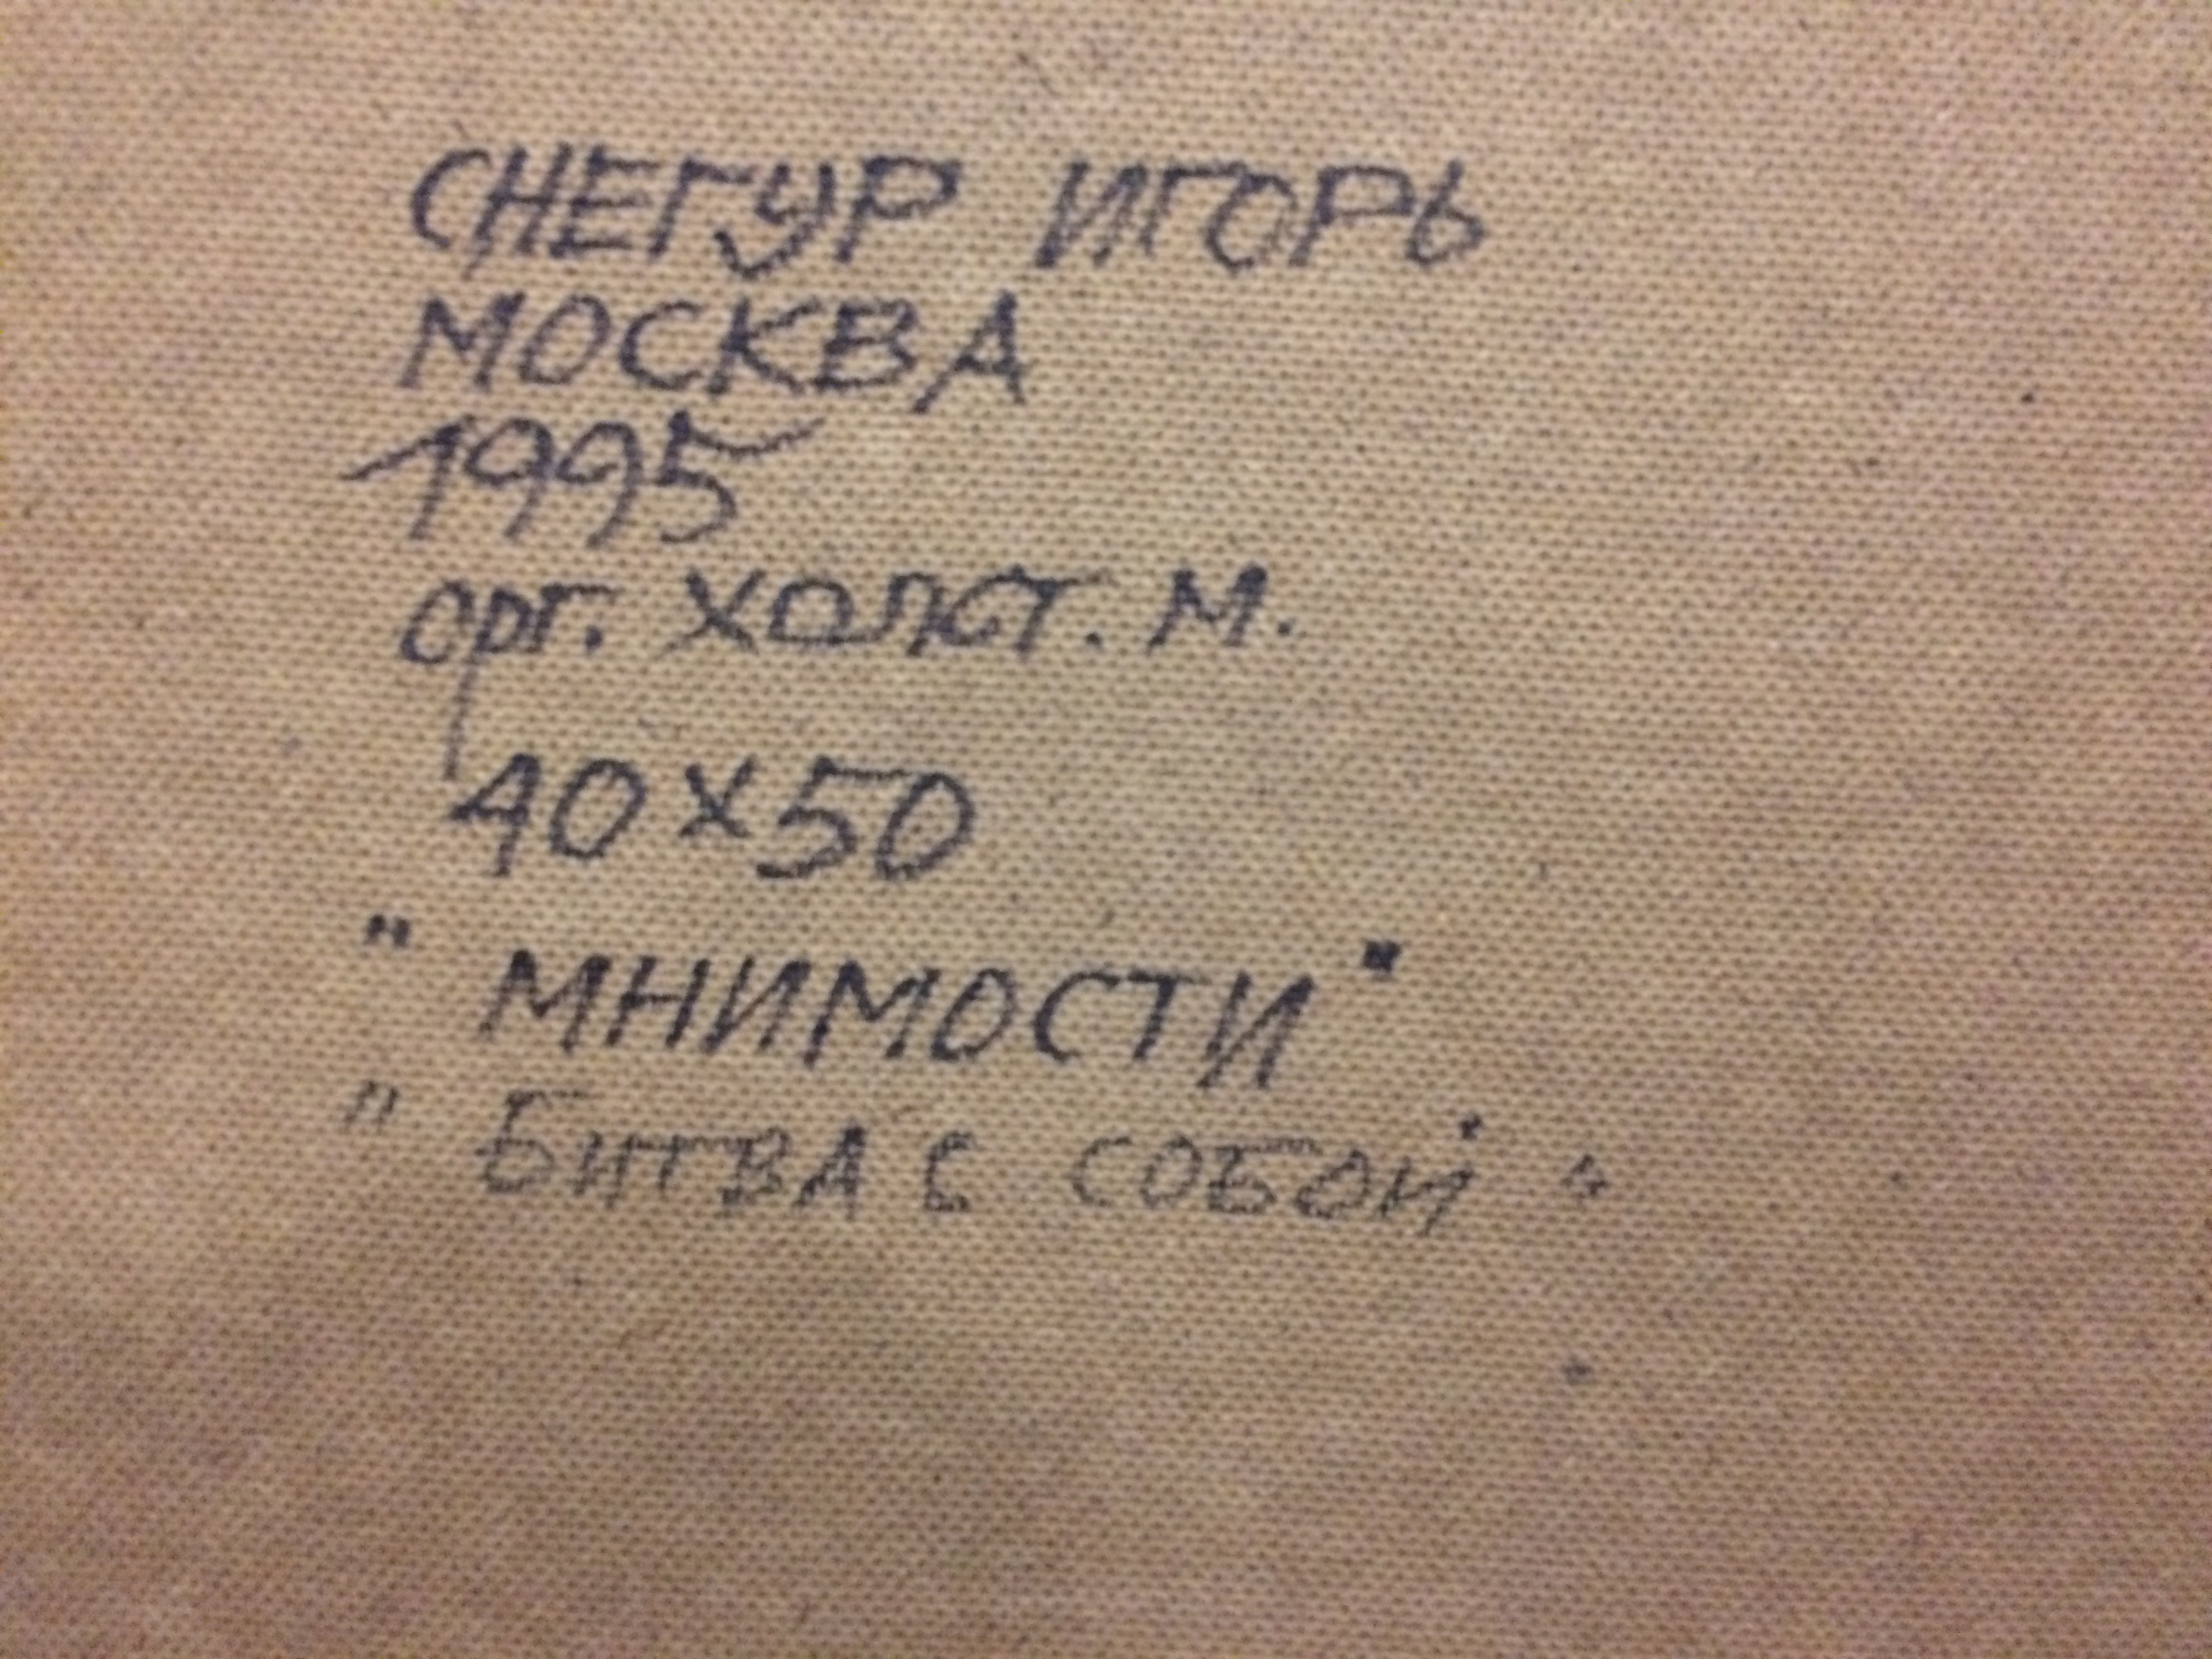 СНЕГУР ИГОРЬ
МОСКВА
1995
орг. холст. м.
40х50
"МНИМОСТИ"
"БИТВА С СОБОЙ"